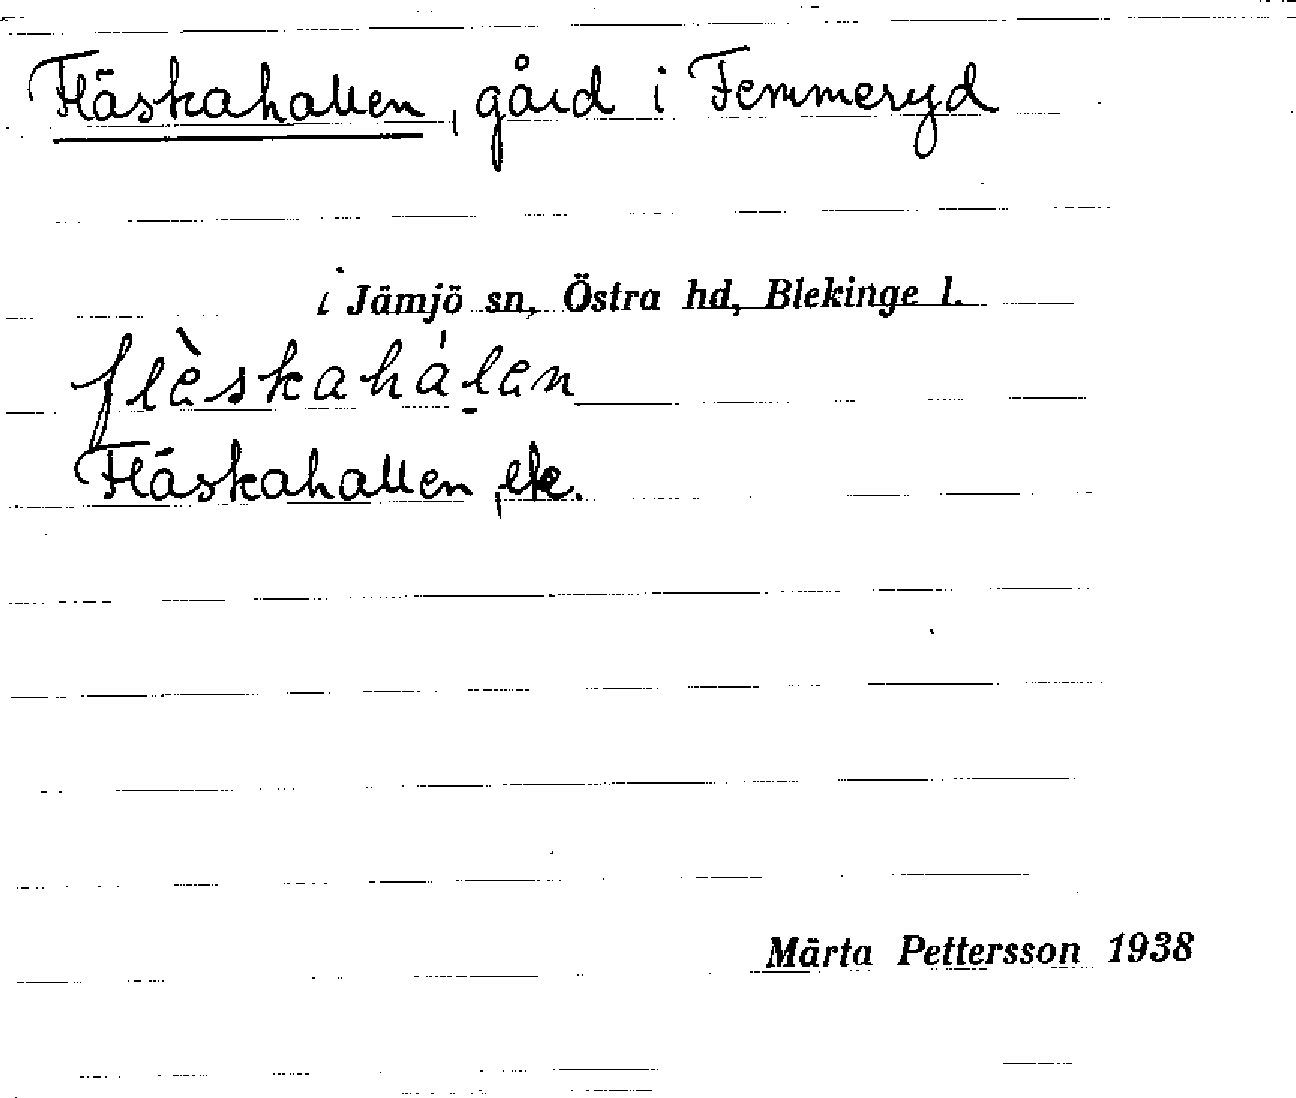 Fläskahallen, gård i Femmeryd
i Jämjö sn, Östra hd, Blekinge l.
flὲskahálen
Fläskahallen, ek.
Märta Pettersson 1938